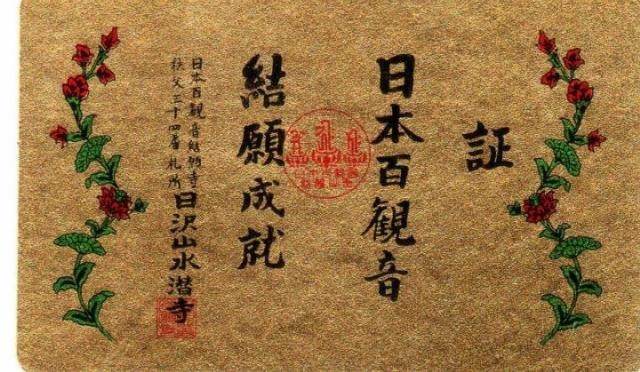 証
日本百観音
結願成就
日本百観音結願寺
秩父三十四番札所
日沢山水潜寺